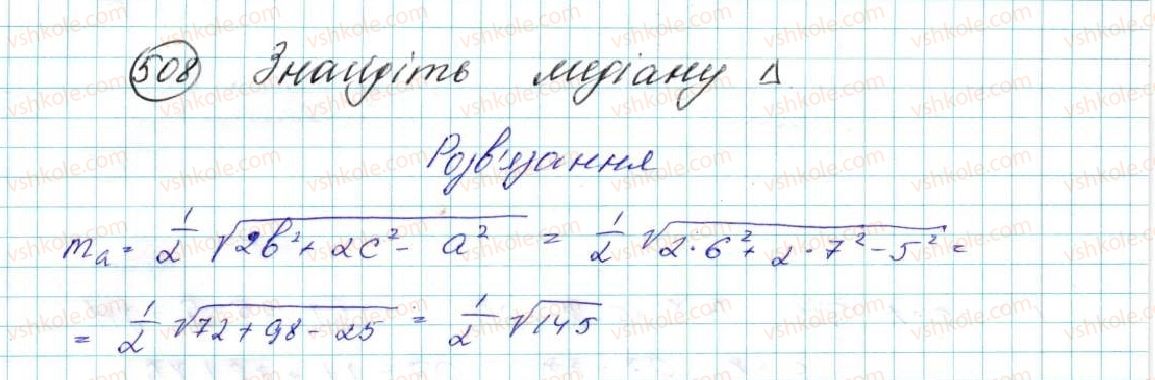 508 Знайдіть медіану Δ
Розв'язання
mₐ = 1/2 √(2b² + 2c² - a²) = 1/2 √(2·6² + 2·7² - 5²) =
= 1/2 √(72 + 98 - 25) = 1/2 √145